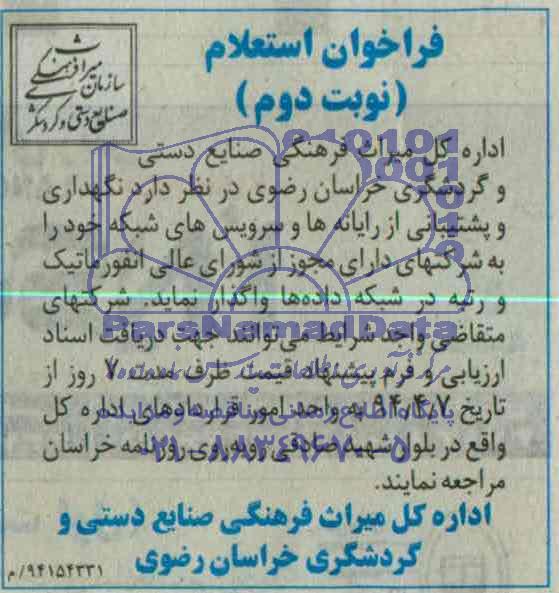 فراخوان استعلام
(نوبت دوم)
سازمان میراث فرهنگی
صنایع دستی و گردشگری
اداره کل میراث فرهنگی صنایع دستی
و گردشگری خراسان رضوی در نظر دارد نگهداری
و پشتیبانی از رایانه ها و سرویس های شبکه خود را
به شرکتهای دارای مجوز از شورای عالی انفورماتیک
و رتبه در شبکه داده‌ها واگذار نماید. شرکتهای
متقاضی واجد شرایط می‌توانند جهت دریافت اسناد
ارزیابی و فرم پیشنهاد قیمت ظرف مدت ۷ روز از
تاریخ ۹۴/۴/۷ به واحد امور قراردادهای اداره کل
واقع در بلوار شهید صادقی روبه‌روی روزنامه خراسان
مراجعه نمایند.
اداره کل میراث فرهنگی صنایع دستی و
گردشگری خراسان رضوی
۹۴۱۵۴۳۳۱/م
ParsNamadData